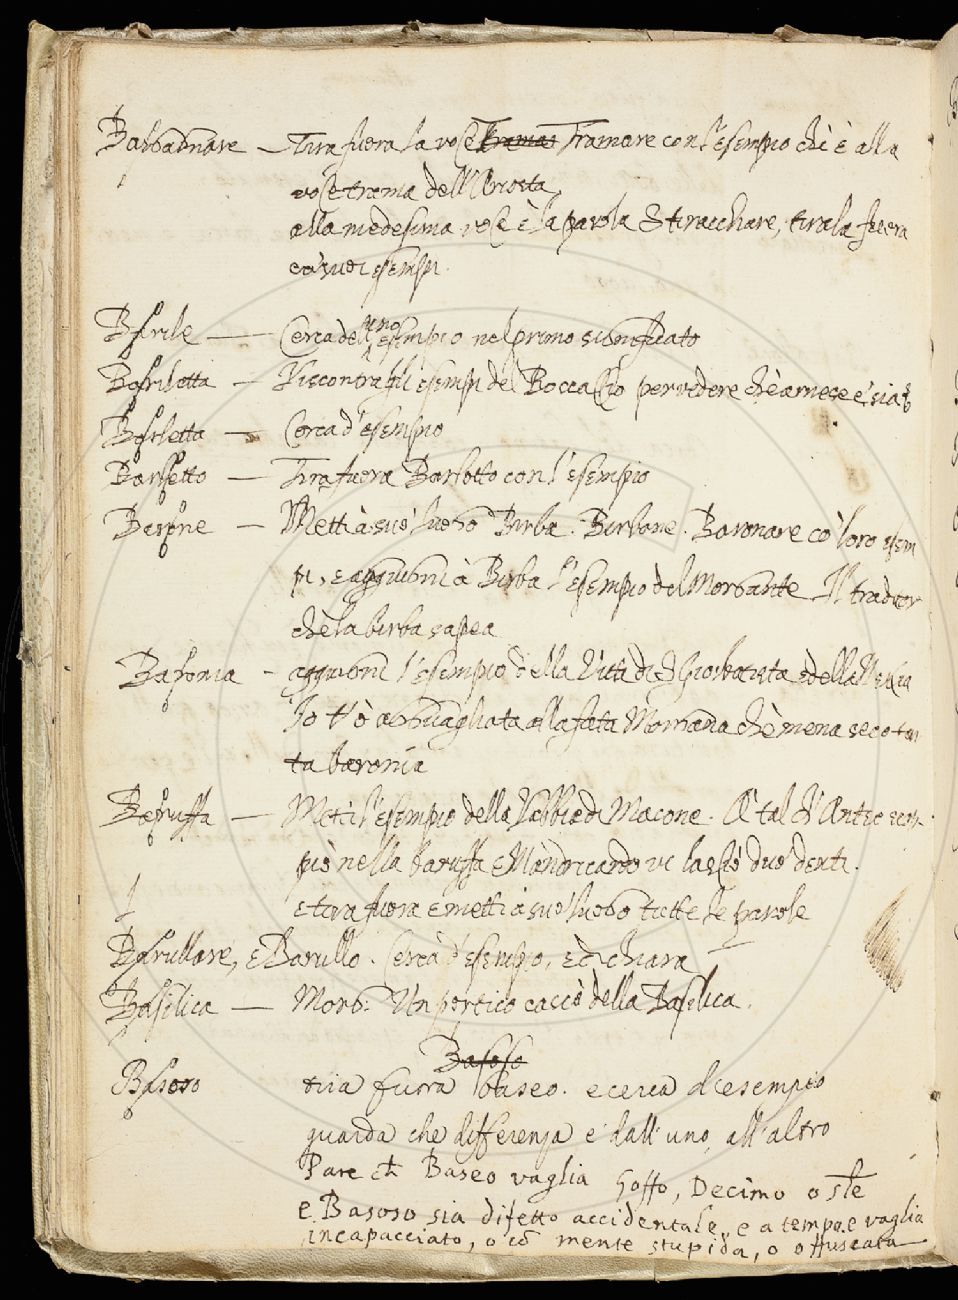 Tira fuora la voce Tramare con l'esempio ch'è alla
voce trama dell'
alla medesima voce è la parola Stiracchiare, tirala fuora
co' suoi esempi.
Cerca del uno esempio nel primo significato
Riscontra gli esempi del Boccaccio per vedere che arnese e' sia
Cerca d'esempio
Barletto — Tira fuora Barlotto con l'esempio
Barone — Metti à suo luogo Birba. Birbone. Baronare co' loro esem
pi, e aggiugni à Birba l'esempio del Morgante Il traditor
che la birba sapea
Baronia — aggiugni l'esempio della Vita di S. Giovbatista e della
Io t'ò agguagliata alla fata Morgana che mena seco tan
ta baronia
Baruffa — Metti l'esempio della Rabbia di Macone. A tal d'
piò nella baruffa e Mandricardo vi lasciò duo denti.
e tira fuora e metti à suo luogo tutte le parole
Barullare, e Barullo. Cerca d'esempio, e dichiara
Basilica — Morg. Un portico cascò della Basilica.
Basoso
Basoso tira fuora baseo. e cerca d'esempio
guarda che differenza è dall'uno, all'altro
Pare ch Baseo vaglia Goffo, Decimo o
e Basoso sia difetto accidentale, e a tempo, e vaglia
incapacciato, o cō mente stupida, o offuscata